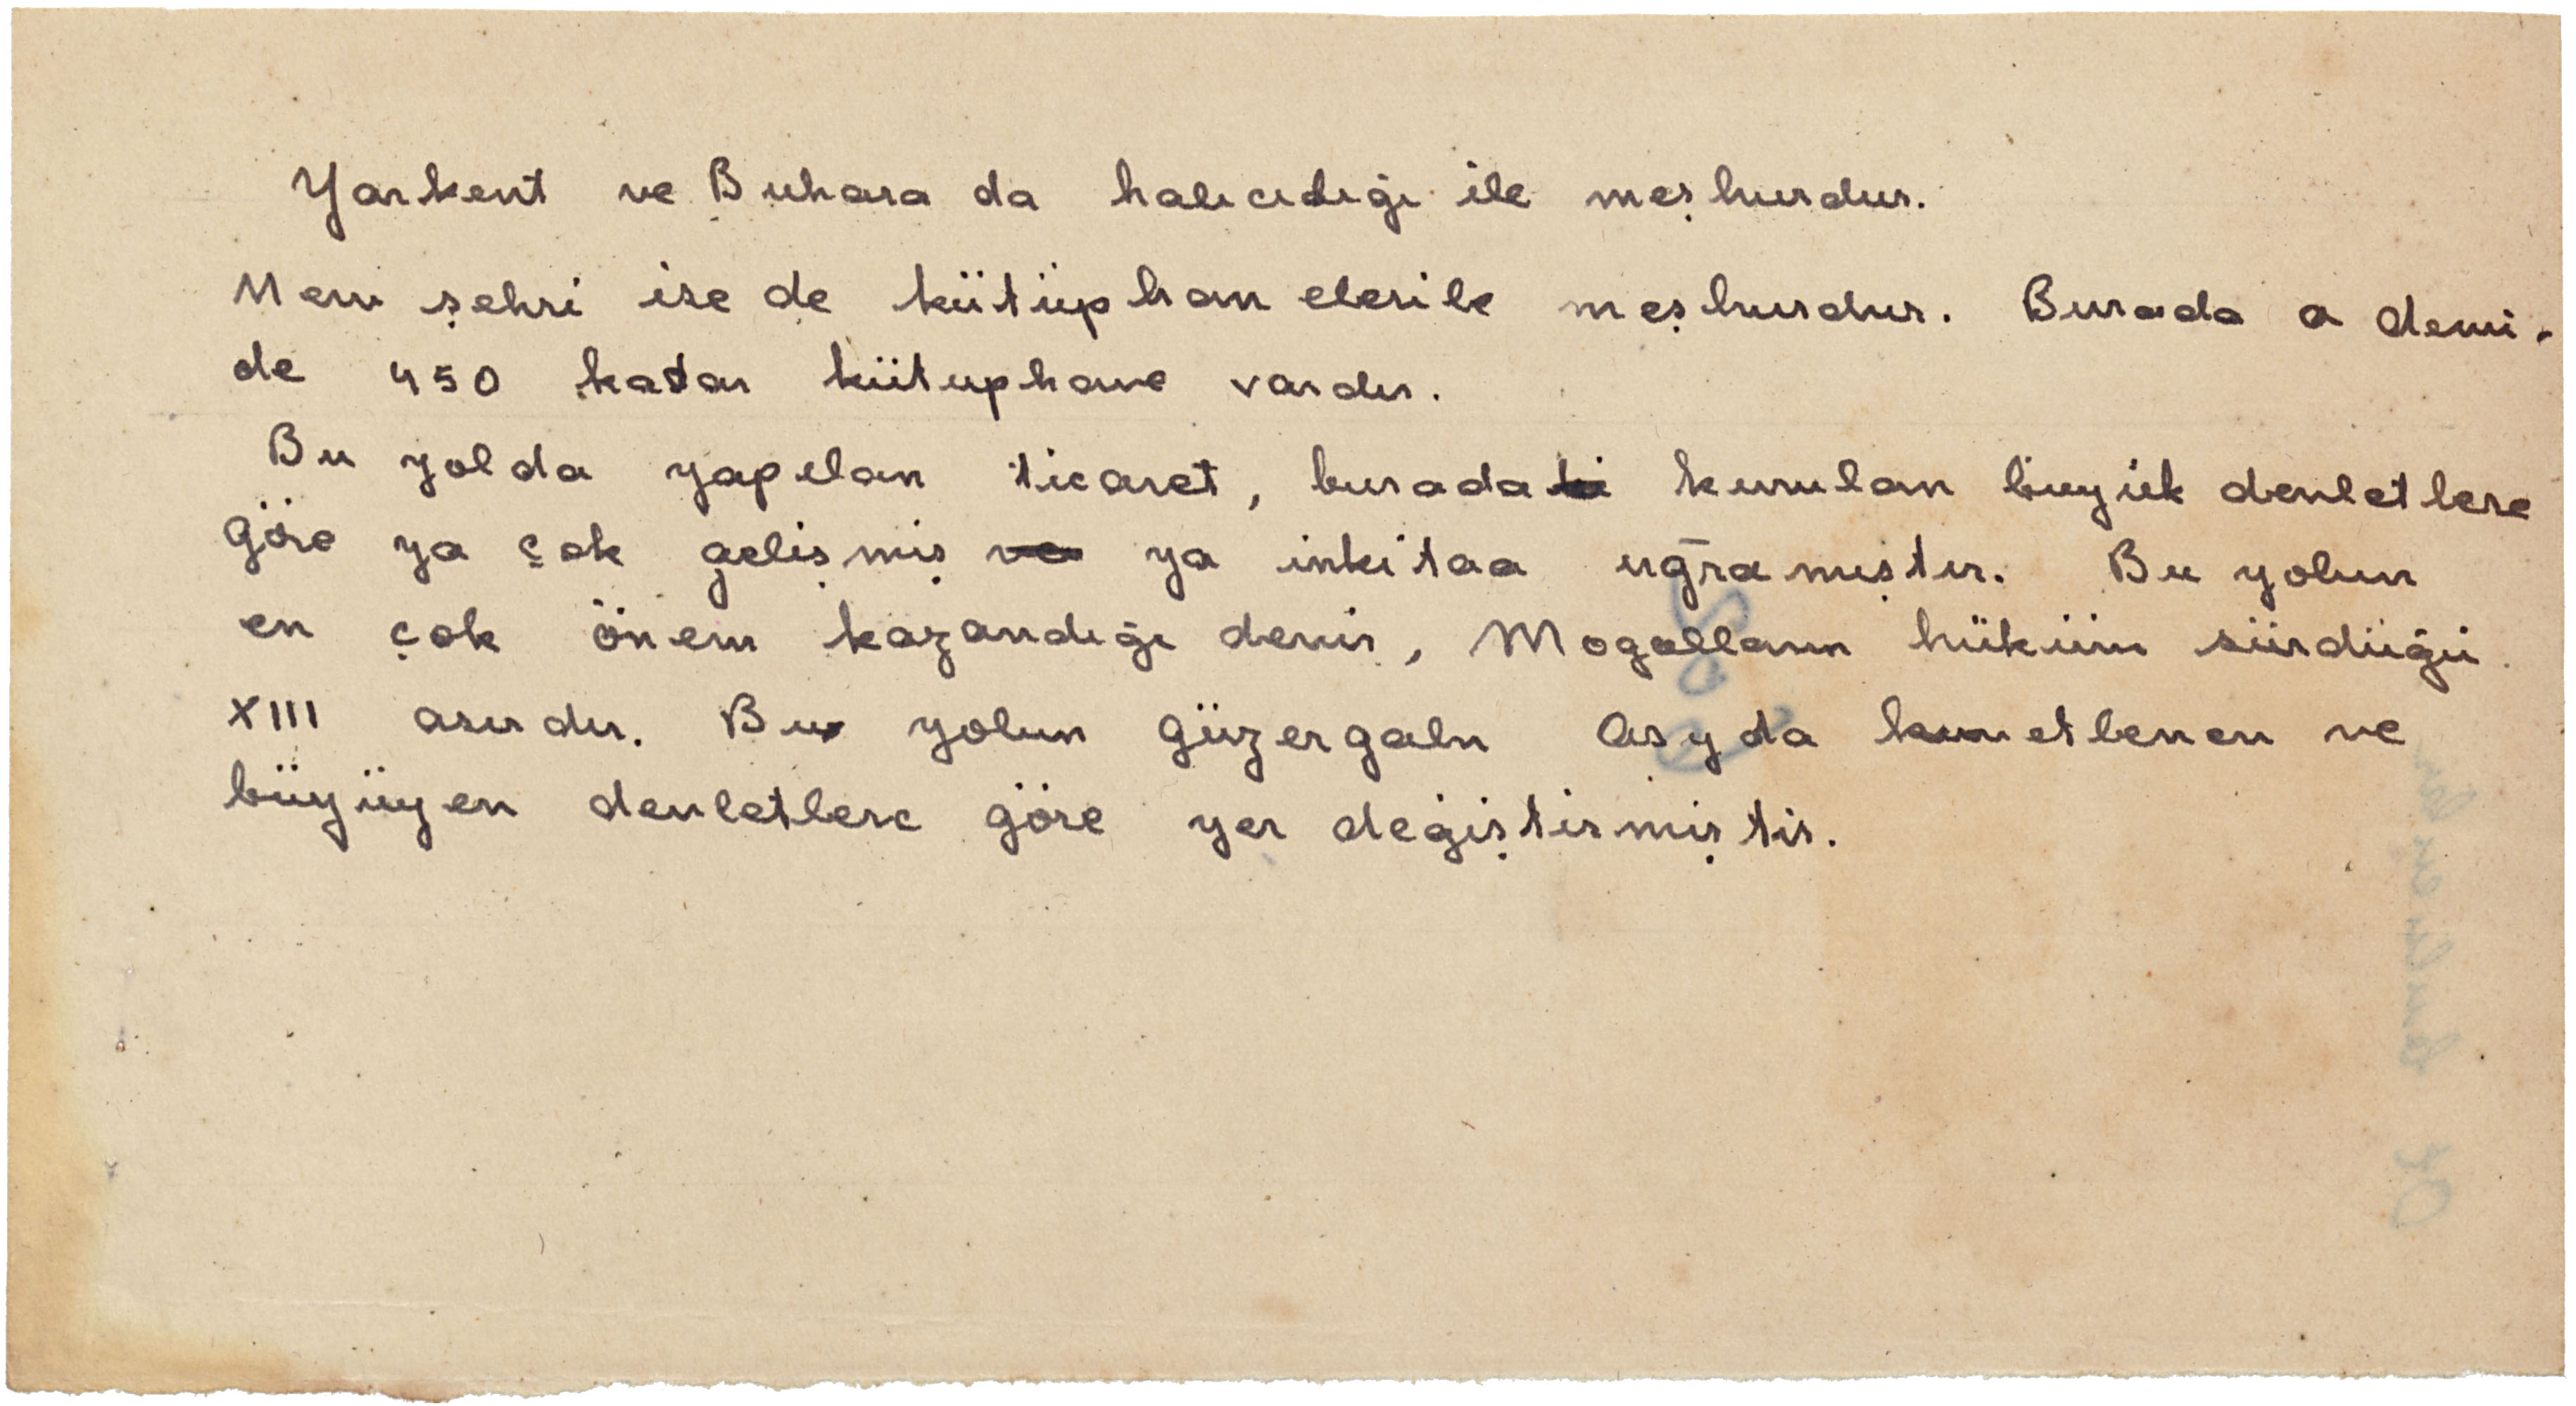 Yarkent ve Buhara da halıcılığı ile meşhurdur.
Merv şehri ise de kütüphanelerile meşhurdur. Burada o demi-
de 450 kadar kütuphane vardır.
Bu yolda yapılan ticaret, burada kurulan büyük devletlere
göre ya çok gelişmiş ya inkitaa uğramıştır. Bu yolun
en çok önem kazandığı devir, Mogolların hüküm sürdüğü
XIII asırdır. Bu yolun güzergahı Asyda kuvetlenen ve
büyüyen devletlere göre yer değiştirmiştir.